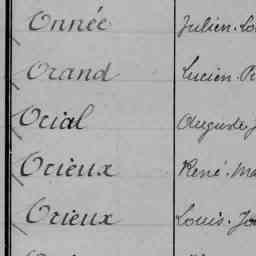 Onnée Julien-Lo
Orand Lucien-Pi
Orial Auguste-J
Orieux René-Ma
Orieux Louis-Jo